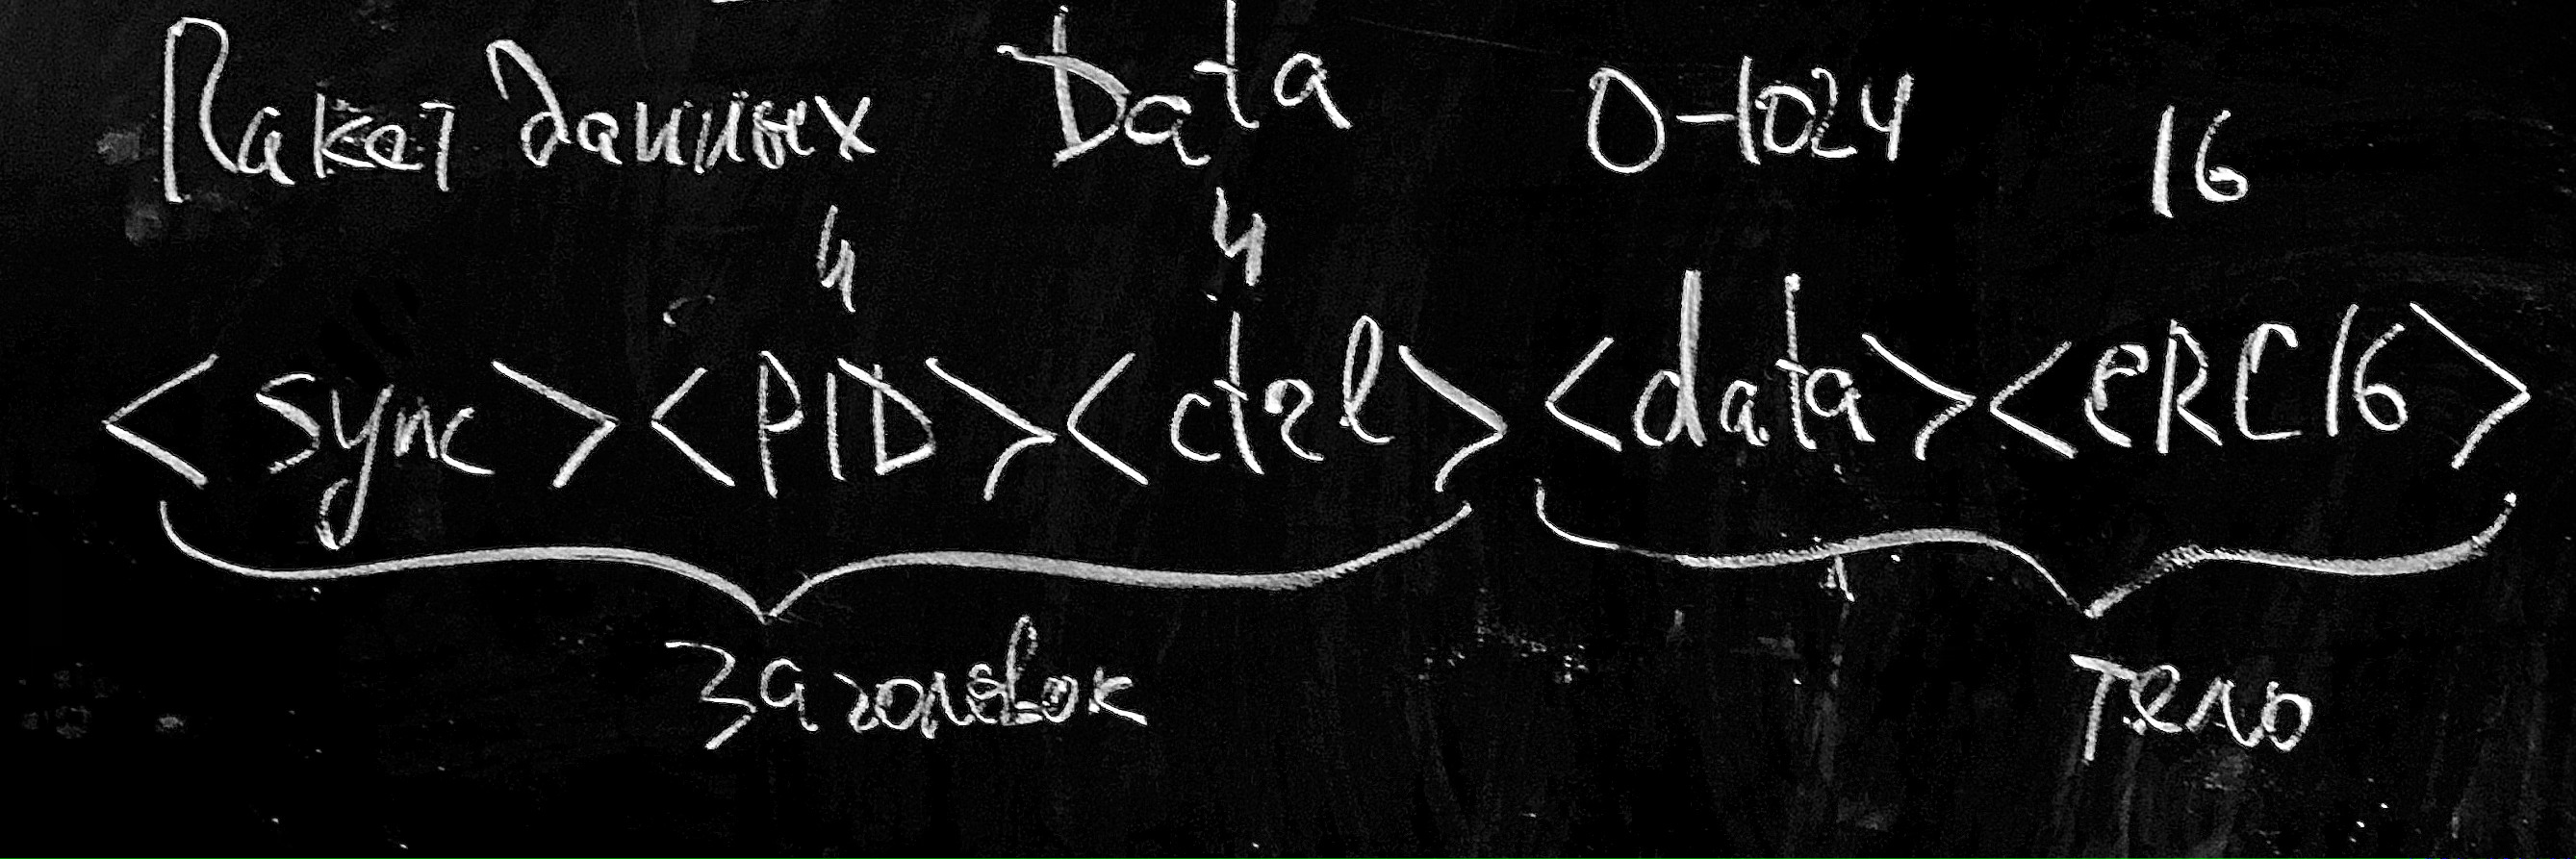 Пакет данных Data 0-1024 16
4 4
<sync><PID><ctrl><data><CRC16>
заголовок тело